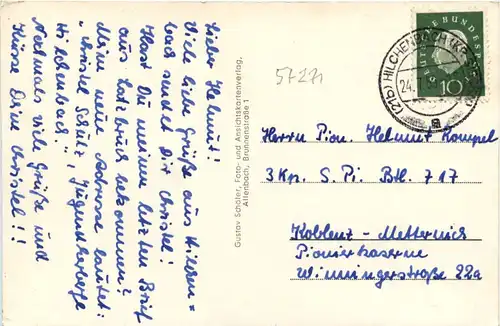 Lieber Helmut!
Viele liebe Grüße aus Hilchen=
bach sendet Dir Christel!
Hast Du meinen letzten Brief
aus Lasbruck bekommen?
Meine neue Adresse lautet:
"Christel Schulz, Jugendherberge
Hilchenbach."
Nochmals viele Grüße und
Küsse Dein Christel!!
Gustav Schäfer, Foto- und Ansichtskartenverlag,
Attenbach, Brunnenstraße 1
57271
(21b) HILCHENBACH (KR.
24.
a
DEUTSCHE BUNDESPOST
10
Herrn Pion. Helmut Kompel
3 Kp. S. Pi. Btl. 717
Koblenz - Metternich
Pionierkaserne
Winningerstraße 22a